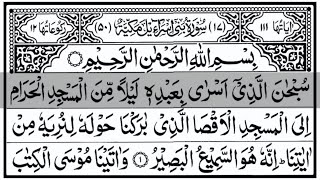 اٰیاتہا ۱۱۱ (۱۷) سُوْرَةُ بَنِیْٓ اِسْرَآءِیْلَ مَکِّیَّةٌ (۵۰) رکوعاتہا ۱۲
بِسْمِ اللّٰهِ الرَّحْمٰنِ الرَّحِیْمِ
سُبْحٰنَ الَّذِیْۤ اَسْرٰی بِعَبْدِهٖ لَیْلًا مِّنَ الْمَسْجِدِ الْحَرَامِ
اِلَی الْمَسْجِدِ الْاَقْصَا الَّذِیْ بٰرَكْنَا حَوْلَهٗ لِنُرِیَهٗ مِنْ
اٰیٰتِنَا ؕ اِنَّهٗ هُوَ السَّمِیْعُ الْبَصِیْرُ ۱ وَاٰتَیْنَا مُوْسَی الْكِتٰبَ